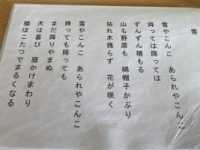 雪
雪やこんこ　あられやこんこ
降っては降っては
ずんずん積もる
山も野原も　綿帽子かぶり
枯れ木残らず　花が咲く
雪やこんこ　あられやこんこ
降っても降っても
まだ降りやまぬ
犬は喜び　庭かけまわり
猫はこたつでまるくなる